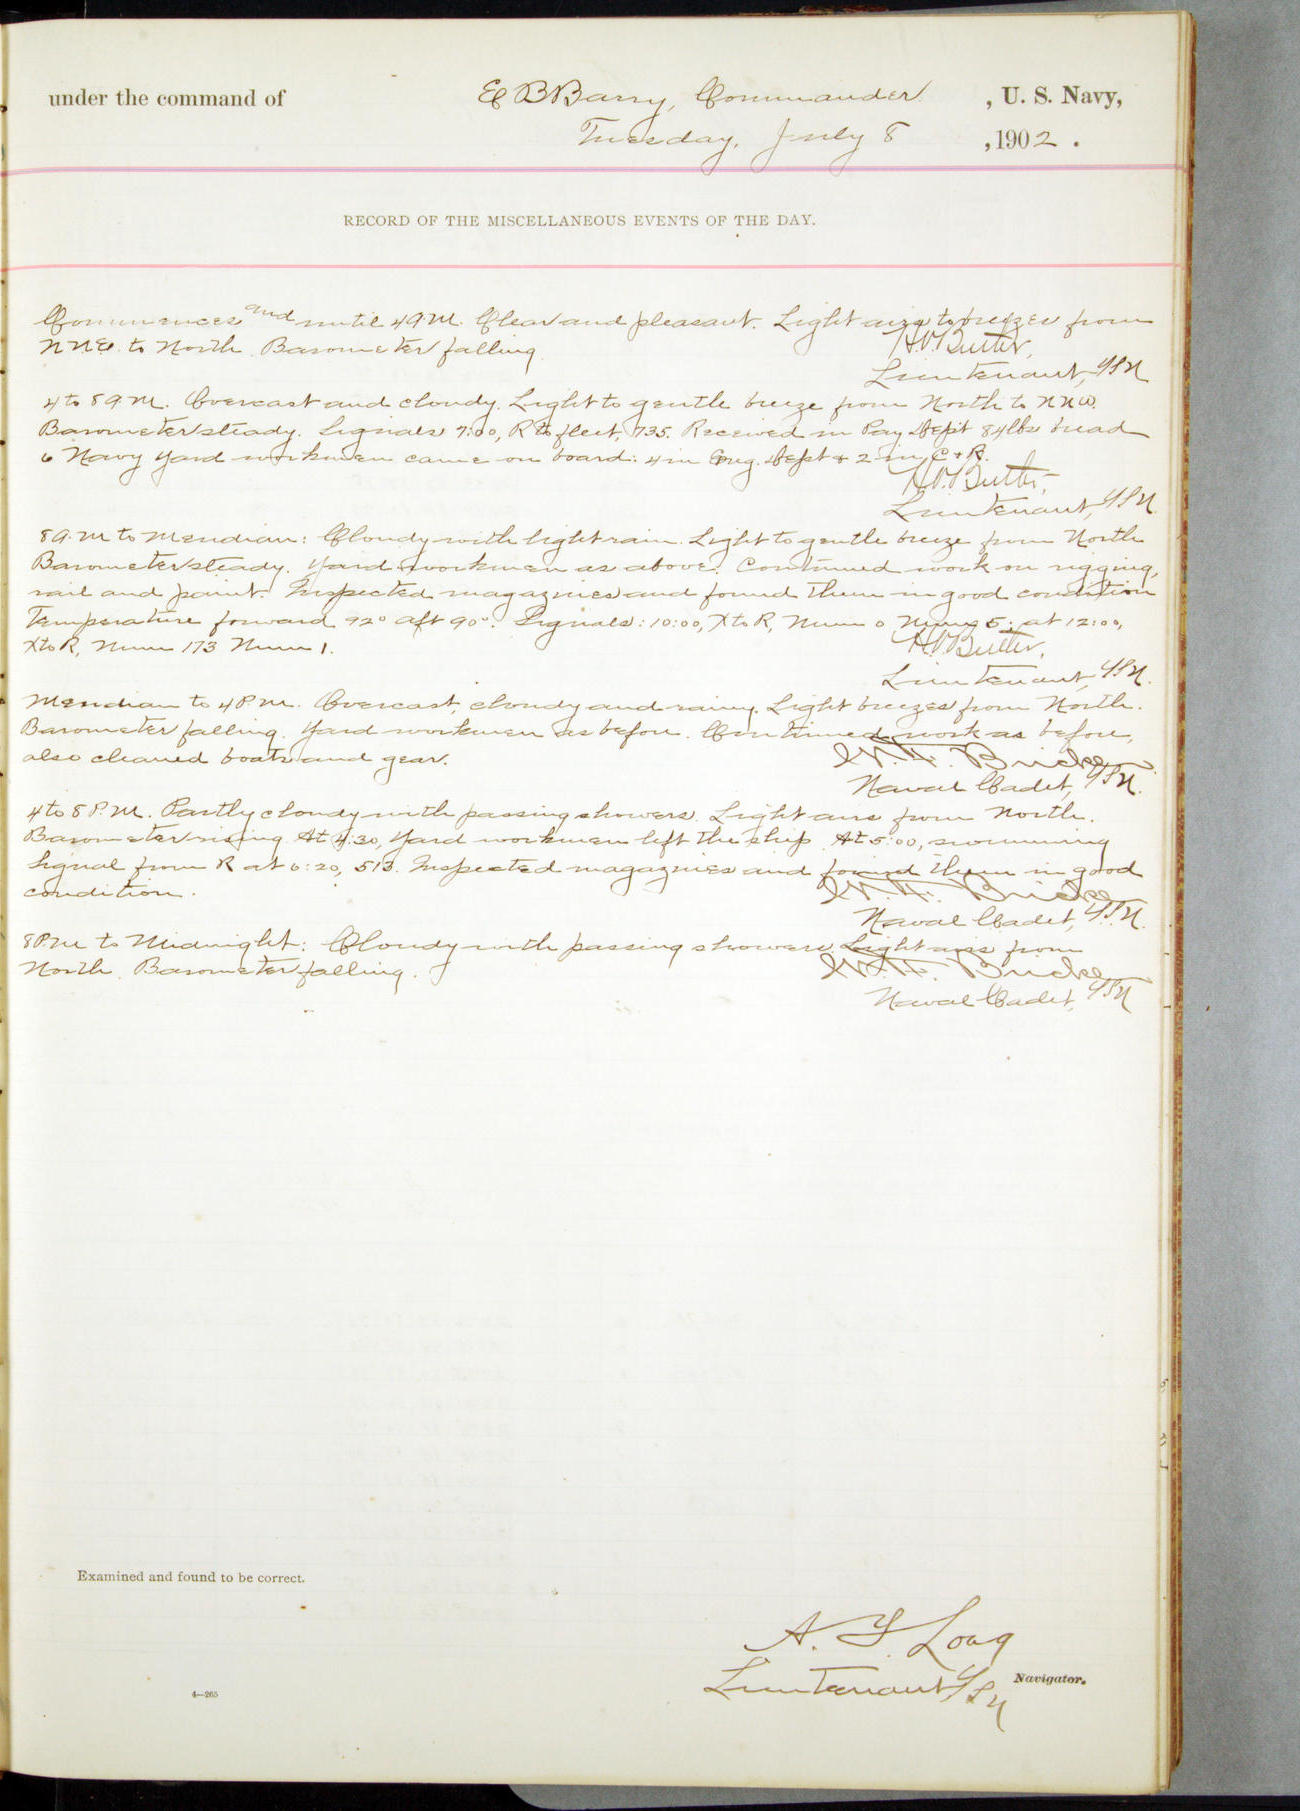 under the command of E B Barry, Commander, U. S. Navy,
Tuesday, July 8, 1902.
RECORD OF THE MISCELLANEOUS EVENTS OF THE DAY.
Commences and until 4 A.M. Clear and pleasant. Light airs to breezes from
NNE. to North. Barometer falling.
H.V. Butler,
Lieutenant, USN
4 to 8 A.M. Overcast and cloudy. Light to gentle breeze from North to NNW.
Barometer steady. Signals 7:00, R to fleet, 735. Received in Pay Dep't 84 lbs bread
6 Navy Yard workmen came on board: 4 in Eng. Dept & 2 in C & R.
H.V. Butler,
Lieutenant, USN.
8 A.M to Meridian: Cloudy with light rain. Light to gentle breeze from North
Barometer steady. Yard workmen as above. Continued work on rigging,
rail and paint. Inspected magazines and found them in good condition
Temperature forward 92° aft 90°. Signals: 10:00, X to R, Num 0 Num 5; at 12:00,
X to R, Num 173 Num 1.
H.V. Butler,
Lieutenant, USN.
Meridian to 4 P.M. Overcast, cloudy and rainy. Light breezes from North.
Barometer falling. Yard workmen as before. Continued work as before,
also cleaned boats and gear.
Naval Cadet, USN.
4 to 8 P.M. Partly cloudy with passing showers. Light airs from North.
Barometer rising. At 4:30, Yard workmen left the ship. At 5:00, swimming
Signal from R at 6:20, 513. Inspected magazines and found them in good
condition.
Naval Cadet, USN.
8 P.M to Midnight: Cloudy with passing showers. Light airs from
North. Barometer falling.
Naval Cadet, USN
Examined and found to be correct.
A. T. Long
Lieutenant USN Navigator.
4—265